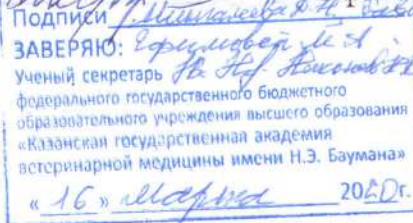 Подписи Мингалеева Д.Н.
ЗАВЕРЯЮ: Ефимовой М А
Ученый секретарь
федерального государственного бюджетного
образовательного учреждения высшего образования
«Казанская государственная академия
ветеринарной медицины имени Н.Э. Баумана»
« 16 » марта 2020г.